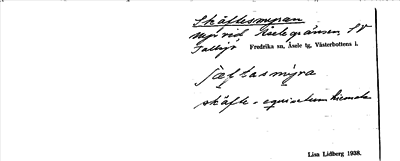 Skäftesmyran
Myr vid Åselegränsen, SV
Talljö Fredrika sn, Åsele lg, Västerbottens l.
skäfte = equisetum hiemale
Lisa Lidberg 1938.